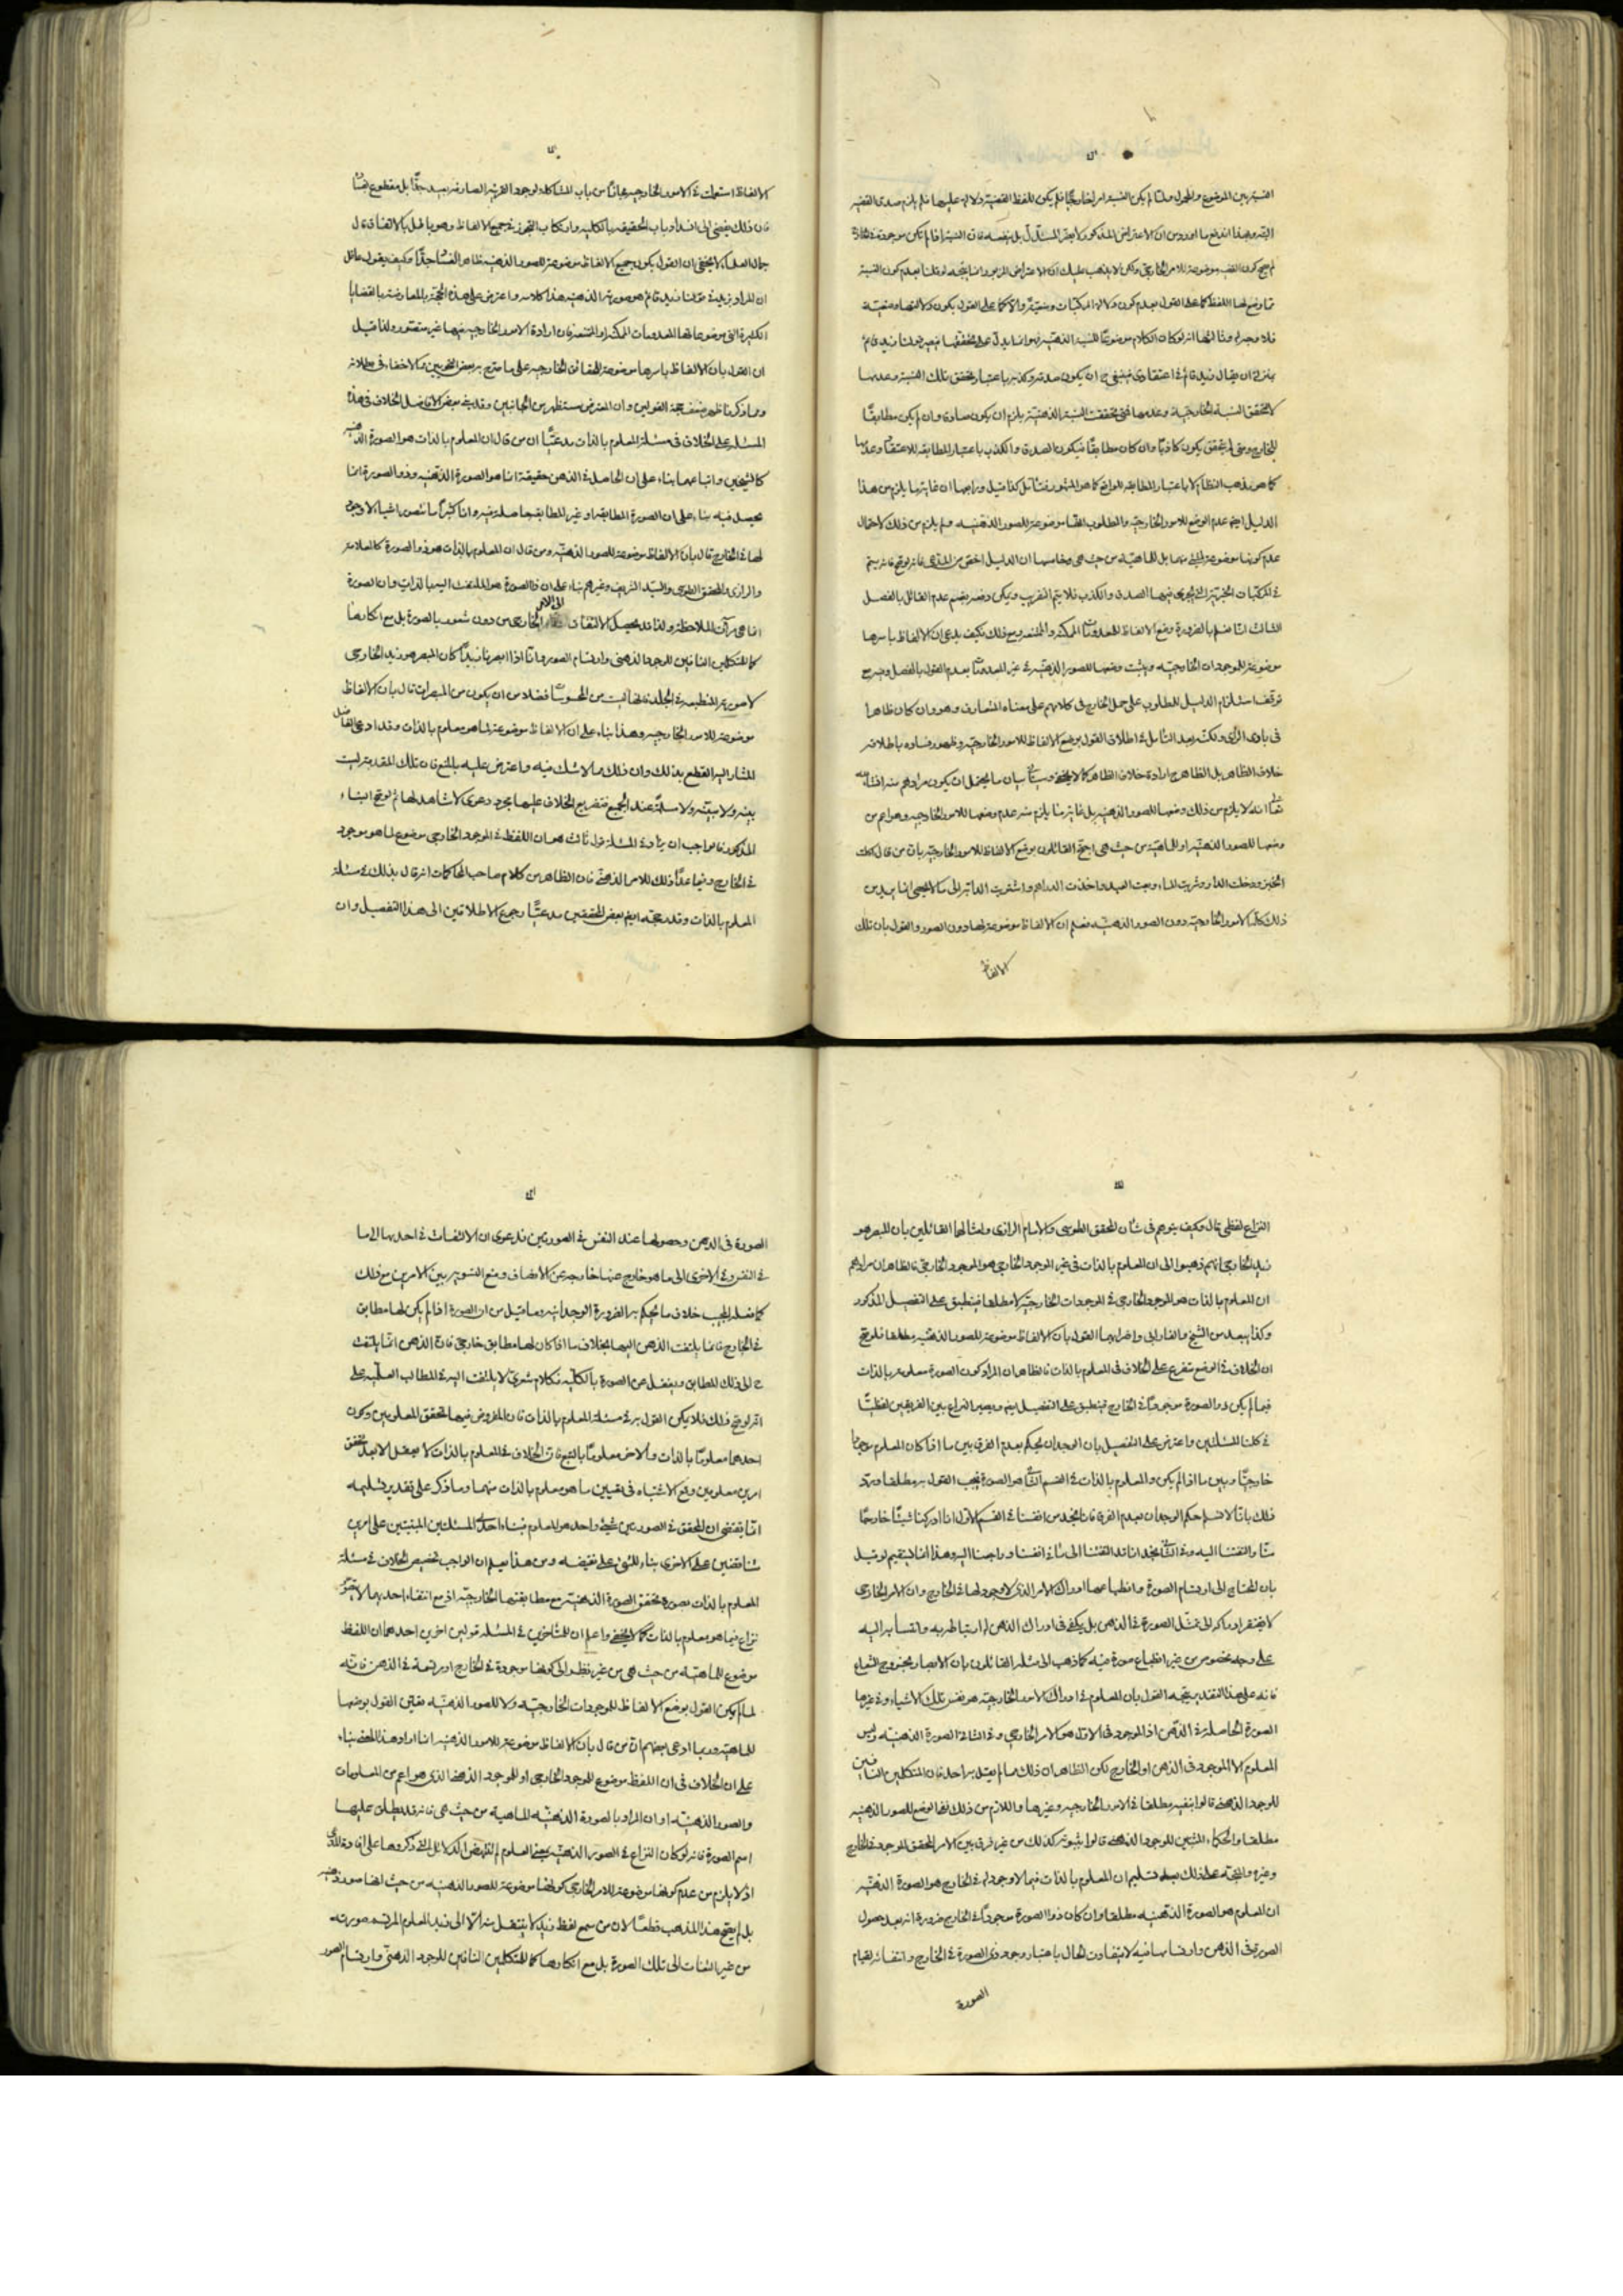 النسبة بين الموضوع والمحمول ولما لم يكن النسبة امرا خارجيا فلم يكن للفظ القضية دلالة عليها فلم يلزم صدق القضية
البتة وبهذا اندفع ما اورد من ان الاعتراض المذكور لا يضر المستدل بل ينفعه فان النسبة اذا لم تكن موجودة في الخارج
لم يصح كون القضية موضوعة للامر الخارجي ولكن لا يذهب عليك ان الاعتراض المزبور انما يتجه لو قلنا بعدم كون النسبة
مما وضع لها اللفظ كما على القول بعدم كون دلالة المركبات وضعية والا كما على القول بكون دلالتها وضعية
فلا وجه له وثالثها انه لو كان الكلام موضوعا للنسبة الذهنية فهو انما يدل على تحققها فيصير قولنا زيد قائم
بمنزلة ان يقال زيد قائم في اعتقادي فينبغي ح ان يكون صدقه وكذبه باعتبار تحقق تلك النسبة وعدمها
لا بتحقق النسبة الخارجية وعدمها فمتى تحققت النسبة الذهنية يلزم ان يكون صادقا وان لم يكن مطابقا
للخارج ومتى لم يتحقق يكون كاذبا وان كان مطابقا فيكون الصدق والكذب باعتبار المطابقة للاعتقاد وعدمها
كما هو مذهب النظام لا باعتبار المطابقة للواقع كما هو المشهور فتأمل كذا قيل ورابعها ان غاية ما يلزم من هذا
الدليل ايضا عدم الوضع للامور الخارجية والمطلوب انها موضوعة للصور الذهنية ولم يلزم من ذلك لاحتمال
عدم كونها موضوعة لشيء منهما بل للماهية من حيث هي وخامسها ان الدليل اخص من المدعى فانه لو تم فانه يتم
في المركبات الخبرية التي يجري فيها الصدق والكذب فلا يتم التقريب ويمكن دفعه بضم عدم القائل بالفصل
الثالث انا نعلم بالضرورة وضع الالفاظ للمعدومات الممكنة والممتنعة ومع ذلك فكيف يدعى ان الالفاظ باسرها
موضوعة للموجودات الخارجية ويثبت وضعها للصور الذهنية في غير المعدومات بعدم القول بالفصل وصرح
توقف استلزام الدليل للمطلوب على حمل الخارج في كلامهم على معناه المتعارف وهو وان كان ظاهرا
في بادي الرأي ولكنه بعد التأمل في اطلاق القول بوضع الالفاظ للامور الخارجية وظهور فساده باطلاقه
خلاف الظاهر بل الظاهر ح ارادة خلاف الظاهر كما لا يخفى وسيأتي بيان ما يحتمل ان يكون مرادهم منه انشاء الله
تعالى انه لا يلزم من ذلك وضعها للصور الذهنية بل غاية ما يلزم منه عدم وضعها للامور الخارجية وهو اعم من
وضعها للصور الذهنية او للماهية من حيث هي احتج القائلون بوضع الالفاظ للامور الخارجية بان من قال اكلت
الخبز ودخلت الدار وشربت الماء وبعت العبد واخذت الدراهم واشتريت الدابة الى ما لا يحصى انما يريد من
ذلك كله الامور الخارجية دون الصور الذهنية فعلم ان الالفاظ موضوعة لها دون الصور والقول بان تلك
الالفاظ
الالفاظ استعملت في الامور الخارجية مجازا من باب المشاكلة لوجود القرينة الصارفة بعيد جدا بل مقطوع بفساده
فان ذلك يفضي الى انسداد باب الحقيقة بالكلية وارتكاب التجوز في جميع الالفاظ وهو باطل بالاتفاق قال
جمال العلماء لا يخفى ان القول بكون جميع الالفاظ موضوعة للصور الذهنية ظاهر الفساد جدا وكيف يقول عاقل
ان المراد بزيد في قولنا زيد قائم هو صورته الذهنية هذا كلامه واعترض على هذه الحجة بالمعارضة بالقضايا
الكثيرة التي موضوعاتها المعدومات الممكنة او الممتنعة فان ارادة الامور الخارجية فيها غير متصور ولذا قيل
ان القول بان الالفاظ باسرها موضوعة للحقائق الخارجية على ما صرح به بعض النحويين مما لا خفاء في بطلانه
ومما ذكرنا ظهر ضعف حجة القولين وان المعترض مستظهر من الجانبين وقد بنى بعض الافاضل الخلاف في هذه
المسئلة على الخلاف في مسئلة المعلوم بالذات مدعيا ان من قال ان المعلوم بالذات هو الصورة الذهنية
كالشيخين واتباعهما بناء على ان الحاصل في الذهن حقيقة انما هو الصورة الذهنية وذو الصورة انما
يحصل فيه بناء على ان الصورة المطابقة وغير المطابقة حاصلة فيه وانا كثيرا ما نتصور اشياء لا وجود
لها في الخارج قال بان الالفاظ موضوعة للصور الذهنية ومن قال ان المعلوم بالذات هو ذو الصورة كالعلامة
والرازي والمحقق الطوسي والسيد الشريف وغيرهم بناء على ان ذا الصورة هو الملتفت اليه بالذات وان الصورة
انما هي مرآة الملاحظة ولذا قد يحصل الالتفات الى الامر الخارجي من دون شعور بالصورة بل مع انكارها
كما للمتكلمين النافين للوجود الذهني وارتسام الصور وانا اذا ابصرنا زيدا كان المبصر هو زيد الخارجي
لا صورته المنطبعة في الجليدية فانها ليست من المحسوسات فضلا من ان يكون من المبصرات قال بان الالفاظ
موضوعة للامور الخارجية وهذا بناء على ان الالفاظ موضوعة لما هو معلوم بالذات وقد ادعى الفاضل
المشار اليه القطع بذلك وان ذلك مما لا شك فيه واعترض عليه بالمنع فان تلك المقدمة ليست
بينة ولا مبينة ولا مسلمة عند الجميع فتفريع الخلاف عليها مجرد دعوى لا شاهد لها ثم لو تم البناء
المذكور فالواجب ان يزاد في المسئلة قول ثالث هو ان اللفظ في الموجود الخارجي موضوع لما هو موجود
في الخارج وفيما عدا ذلك للامر الذهني فان الظاهر من كلام صاحب المحاكمات انه قال بذلك في مسئلة
المعلوم بالذات وقد رجحه ايضا بعض المحققين مدعيا رجوع الاطلاقين الى هذا التفصيل وان
النزاع لفظي قال وكيف يتوهم في شأن المحقق الطوسي والامام الرازي وامثالهما القائلين بان المبصر هو
زيد الخارجي انهم ذهبوا الى ان المعلوم بالذات في غير الموجود الخارجي هو الموجود الخارجي فالظاهر ان مرادهم
ان المعلوم بالذات هو الموجود الخارجي في الموجودات الخارجية لا مطلقا فينطبق على التفصيل المذكور
وكذا يبعد من الشيخ والفارابي واضرابهما القول بان الالفاظ موضوعة للصور الذهنية مطلقا فلو تم
ان الخلاف في الوضع متفرع على الخلاف في المعلوم بالذات فالظاهر ان المراد كون الصورة معلومة بالذات
فيما لم يكن ذو الصورة موجودا في الخارج فينطبق على التفصيل ايضا ويصير النزاع بين الفريقين لفظيا
في كلتا المسئلتين واعترض على التفصيل بان الوجدان يحكم بعدم الفرق بين ما اذا كان المعلوم موجودا
خارجيا وبين ما اذا لم يكن والمعلوم بالذات في القسم الثاني هو الصورة فيجب القول به مطلقا ورد
ذلك بانا لا نسلم حكم الوجدان بعدم الفرق فانا نجد من انفسنا في القسم الاول انا ادركنا شيئا خارجا
منا والتفتنا اليه وفي الثاني نجد انا قد التفتنا الى ما في انفسنا وراجعنا اليه وهذا انما يستقيم لو قيل
بان المحتاج الى ارتسام الصورة وانطباعها ادراك الامر الذي لا وجود لها في الخارج وان الامر الخارجي
لا يفتقر ادراكه الى تمثل الصورة في الذهن بل يكفي في ادراك الذهن له ارتباطه به وانتسابه اليه
على وجه مخصوص من غير انطباع صورة فيه كما ذهب الى مثله القائلون بان الابصار بخروج الشعاع
فانه على هذا التقدير يتجه القول بان المعلوم في ادراك الامور الخارجية هو نفس تلك الاشياء وفي غيرها
الصورة الحاصلة في الذهن اذ الموجود في الاول هو الامر الخارجي وفي الثاني الصورة الذهنية وليس
المعلوم الا الموجود في الذهن او الخارج لكن الظاهر ان ذلك مما لم يقل به احد فان المتكلمين النافين
للوجود الذهني قالوا بنفيه مطلقا في الامور الخارجية وغيرها واللازم من ذلك نفي الوضع للصور الذهنية
مطلقا والحكماء المثبتين للوجود الذهني قالوا بثبوته كذلك من غير فرق بين الامر المحقق الموجود في الخارج
وغيره والمتجه على ذلك بعد تسليم ان المعلوم بالذات فيما لا وجود له في الخارج هو الصورة الذهنية
ان المعلوم هو الصورة الذهنية مطلقا وان كان ذو الصورة موجودا في الخارج ضرورة انه بعد حصول
الصورة في الذهن وارتسامها فيه لا يتفاوت الحال باعتبار وجود ذي الصورة في الخارج وانتفائه لقيام
الصورة
الصورة في الذهن وحصولها عند النفس في الصورتين فدعوى ان الالتفات في احدهما الى ما
في النفس وفي الاخرى الى ما هو خارج عنها خارجة عن الانصاف ومنع التسوية بين الامرين مع ذلك
كما فعله المجيب خلاف ما يحكم به الضرورة الوجدانية وما قيل من ان الصورة اذا لم يكن لها مطابق
في الخارج فانما يلتفت الذهن اليها بخلاف ما اذا كان لها مطابق خارجي فان الذهن انما يلتفت
ح الى ذلك المطابق ويغفل عن الصورة بالكلية فكلام شعري لا يلتفت اليه في المطالب العلمية على
انه لو تم ذلك فلا يمكن القول به في مسئلة المعلوم بالذات فان المفروض فيها تحقق المعلومين وكون
احدهما معلوما بالذات والاخر معلوما بالتبع فان الخلاف في المعلوم بالذات لا يعقل الا بعد تحقق
امرين معلومين وقع الاشتباه في تعيين ما هو معلوم بالذات منهما وما ذكر على تقدير تسليمه
انما يقتضي ان المحقق في الصورتين شيء واحد هو المعلوم فبناء احدى المسئلتين المبنيتين على امرين
متناقضين على الاخرى بناء للشيء على نقيضه ومن هذا يعلم ان الواجب تخصيص الخلاف في مسئلة
المعلوم بالذات بصورة تحقق الصورة الذهنية مع مطابقتها الخارجية اذ مع انتفاء احدهما لا يتصور
نزاع فيما هو معلوم بالذات كما لا يخفى واعلم ان للمتأخرين في المسئلة قولين اخرين احدهما ان اللفظ
موضوع للماهية من حيث هي من غير نظر الى كونها موجودة في الخارج او مرتسمة في الذهن فانه
لما لم يكن القول بوضع الالفاظ للموجودات الخارجية ولا للصور الذهنية تعين القول بوضعها
للماهية وربما ادعى بعضهم ان من قال بان الالفاظ موضوعة للامور الذهنية انما اراد هذا المعنى بناء
على ان الخلاف في ان اللفظ موضوع للموجود الخارجي او للموجود الذهني الذي هو اعم من المعلومات
والصور الذهنية او ان المراد بالصورة الذهنية الماهية من حيث هي فانه قد يطلق عليها
اسم الصورة فانه لو كان النزاع في الصور الذهنية بمعنى العلوم لم تنهض الدلائل التي ذكروها على افادة المدعى
اذ لا يلزم من عدم كونها موضوعة للامر الخارجي كونها موضوعة للصور الذهنية من حيث انها صور ذهنية
بل لم يصح هذا المذهب قطعا لان من سمع لفظ زيد لا ينتقل منه الا الى زيد المعلوم المرتسمة صورته
من غير التفات الى تلك الصورة بل مع انكارها كما للمتكلمين النافين للوجود الذهني وارتسام الصور